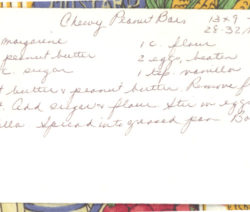 Chewy Peanut Bars 13 x 9
28-32
margarine 1 c. flour
peanut butter 2 eggs, beaten
c. sugar 1 tsp vanilla
butter & peanut butter Remove f
Add sugar & flour Stir in egg
lla Spread into greased pan Ba